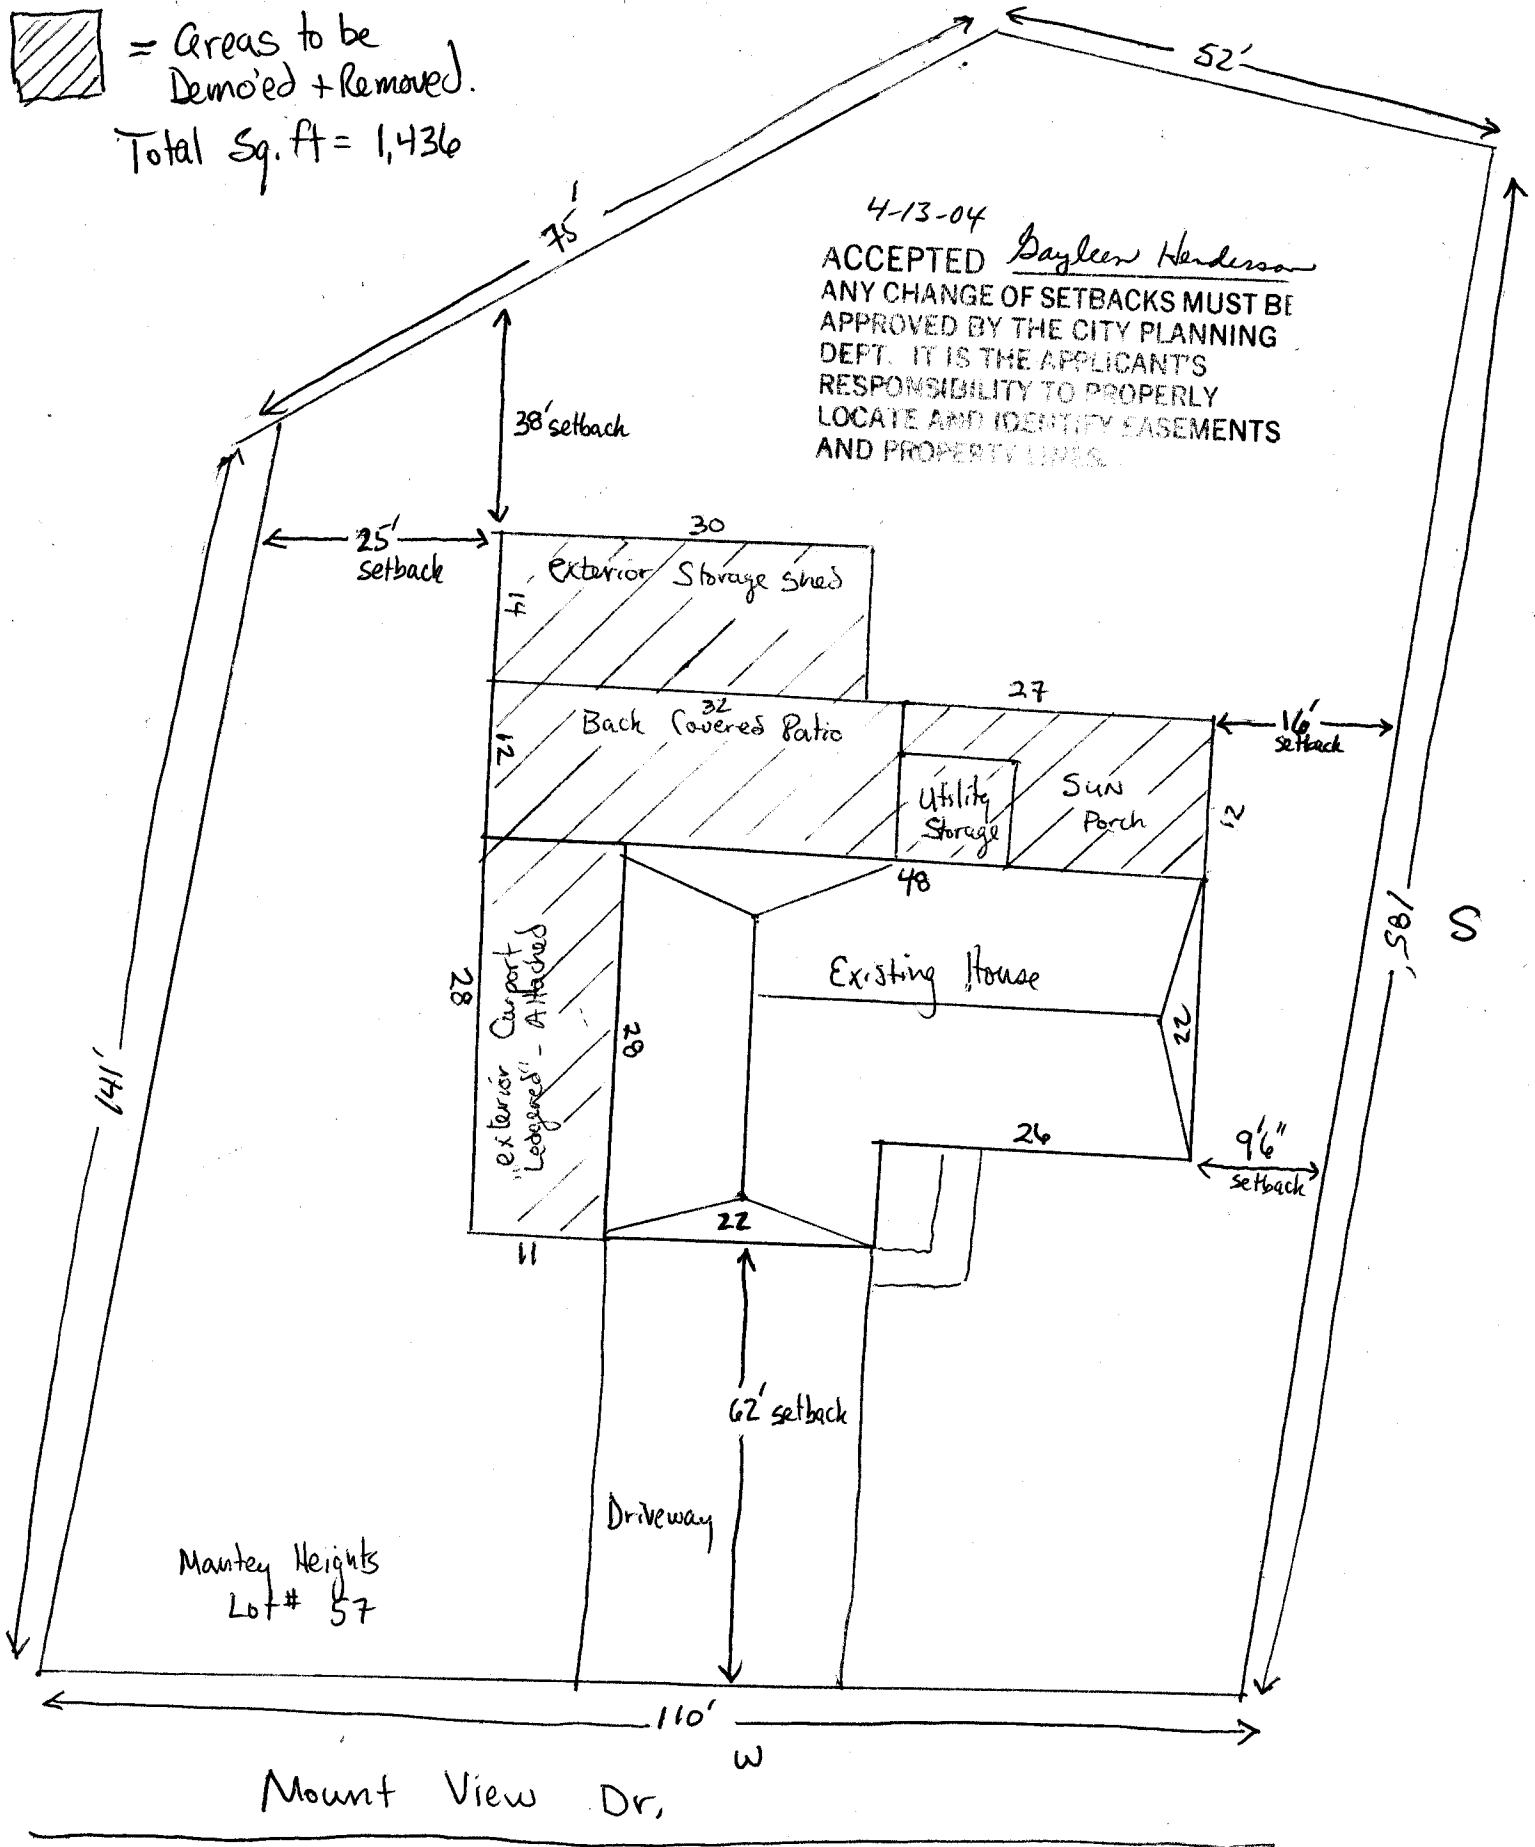 = Areas to be
Demo'ed + Removed.
Total Sq. ft = 1,436
52'
75'
4-13-04
ACCEPTED Gayleen Henderson
ANY CHANGE OF SETBACKS MUST BE
APPROVED BY THE CITY PLANNING
DEPT. IT IS THE APPLICANT'S
RESPONSIBILITY TO PROPERLY
LOCATE AND IDENTIFY EASEMENTS
AND PROPERTY LINES.
38' setback
25'
setback
30
exterior Storage shed
14
32
Back Covered Patio
12
27
16'
setback
Utility
Storage
Sun
Porch
12
48
185'
S
Existing House
28
"exterior Carport
Ledgered" - Attached
28
22
141'
26
9'6"
setback
22
11
62' setback
Driveway
Mantey Heights
Lot # 57
110'
W
Mount View Dr.